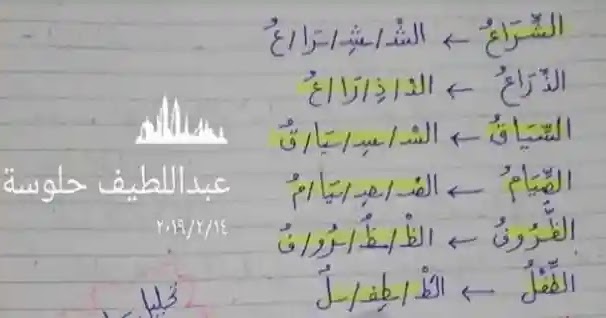 الشِّرَاعُ ← الشْ/شِ/رَا/عُ
الذِّرَاعُ ← الذ/ذِ/رَا/عُ
السِّيَاقُ ← السْ/سِ/يَا/قُ
الصِّيَامُ ← الصْ/صِ/يَا/مُ
الظُّرُوفُ ← الظْ/ظُ/رُو/فُ
الطِّفْلُ ← الطْ/طِفـ/ـلُ
عبداللطيف حلوسة
٢٠١٩/٢/١٤